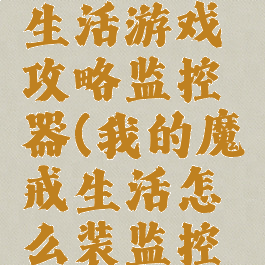 生活游戏
攻略监控
器(我的魔
戒生活怎
么装监控